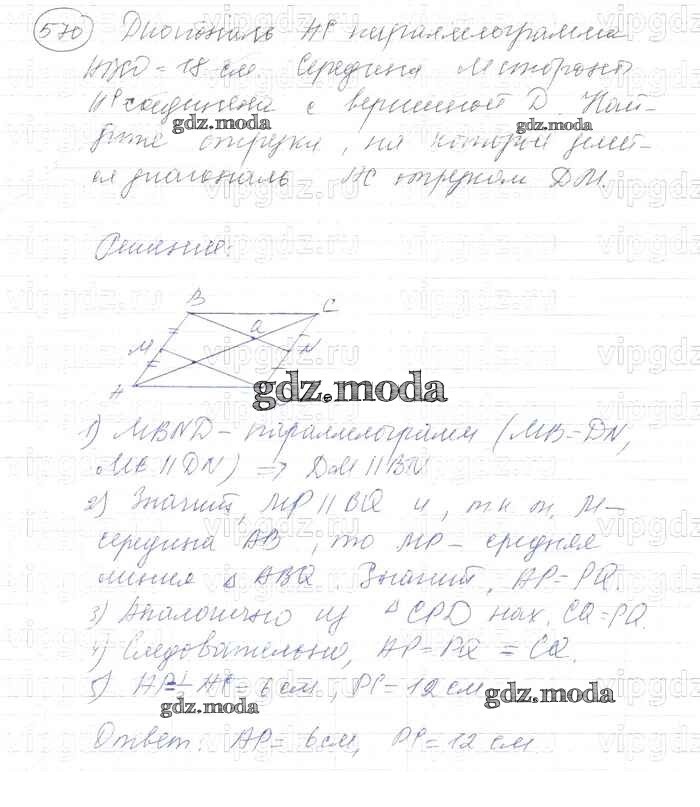 570 Диагональ АС параллелограмма
АВСD = 18 см. Середина М стороны
АВ соединена с вершиной D. Най-
дите отрезки, на которые делит-
ся диагональ АС отрезком DM.
gdz.moda gdz.moda
Решение:
B C
a
M N
A
gdz.moda
1) MBND - параллелограмм (MB = DN,
MB || DN) => DM || BN
2) Значит, MP || BQ и, т.к т. M -
середина AB, то MP - средняя
линия △ ABQ. Значит, AP = PQ.
3) Аналогично из △ CPD нах. CQ = PQ.
4) Следовательно, AP = PQ = CQ.
5) AC = 6 см, PC = 12 см
gdz.moda gdz.moda
Ответ: AP = 6 см, PC = 12 см
vipgdz.ru